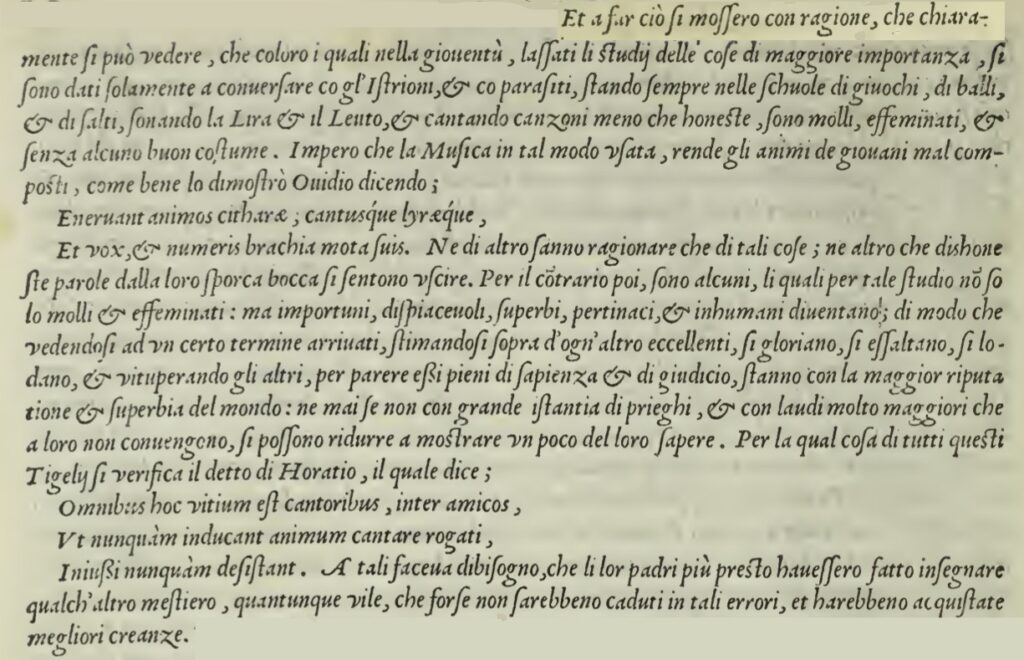 Et a far ciò ſi moſſero con ragione, che chiara-
mente ſi può vedere, che coloro i quali nella giouentù, laſſati li ſtudij delle coſe di maggiore importanza, ſi
ſono dati ſolamente a conuerſare co gl'Iſtrioni, & co paraſiti, ſtando ſempre nelle ſchuole di giuochi, di balli,
& di ſalti, ſonando la Lira & il Leuto, & cantando canzoni meno che honeſte, ſono molli, effeminati, &
ſenza alcuno buon coſtume. Impero che la Muſica in tal modo vſata, rende gli animi de giouani mal com-
poſti, come bene lo dimoſtrò Ouidio dicendo;
Eneruant animos citharæ; cantusq́ue lyræq́ue,
Et vox, & numeris brachia mota ſuis. Ne di altro ſanno ragionare che di tali coſe; ne altro che dishone
ſte parole dalla loro ſporca bocca ſi ſentono vſcire. Per il cõtrario poi, ſono alcuni, li quali per tale ſtudio nõ ſo
lo molli & effeminati: ma importuni, diſpiaceuoli, ſuperbi, pertinaci, & inhumani diuentano; di modo che
vedendoſi ad vn certo termine arriuati, ſtimandoſi ſopra d'ogn'altro eccellenti, ſi gloriano, ſi eſſaltano, ſi lo-
dano, & vituperando gli altri, per parere eßi pieni di ſapienza & di giudicio, ſtanno con la maggior riputa
tione & ſuperbia del mondo: ne mai ſe non con grande iſtantia di prieghi, & con laudi molto maggiori che
a loro non conuengono, ſi poſſono ridurre a moſtrare vn poco del loro ſapere. Per la qual coſa di tutti queſti
Tigelij ſi verifica il detto di Horatio, il quale dice;
Omnibus hoc vitium eſt cantoribus, inter amicos,
Vt nunquàm inducant animum cantare rogati,
Iniußi nunquàm deſiſtant. A tali faceua dibiſogno, che li lor padri più preſto haueſſero fatto inſegnare
qualch'altro meſtiero, quantunque vile, che forſe non ſarebbeno caduti in tali errori, et harebbeno acquiſtate
megliori creanze.